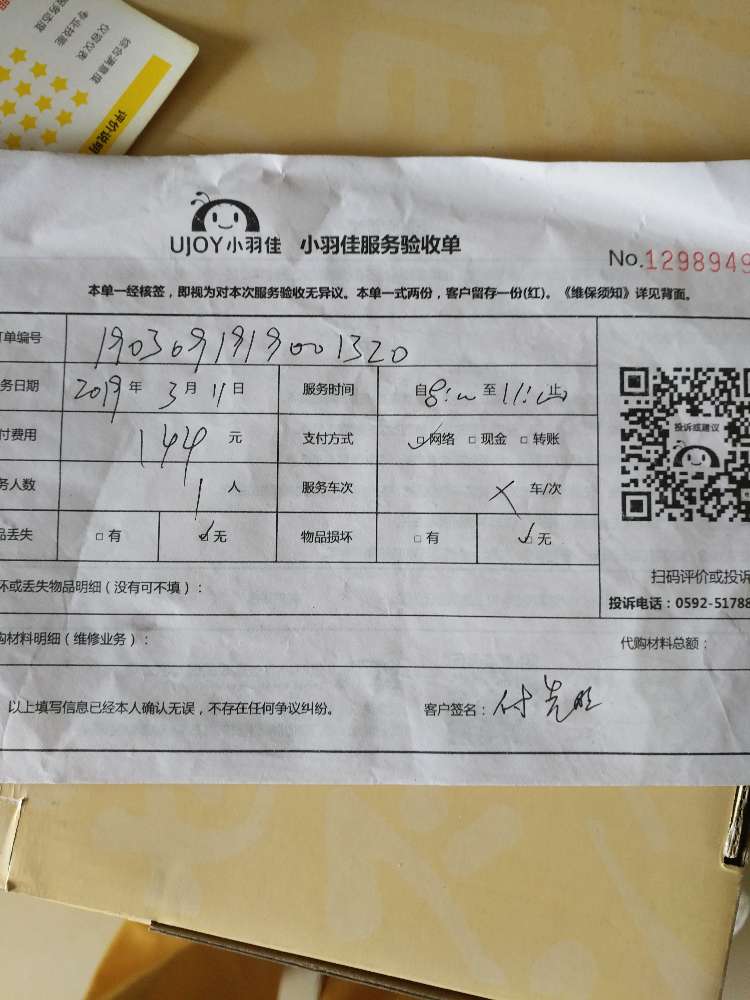 评价说明
综合满意度
仪容仪表
专业技能
服务态度
UJOY小羽佳 小羽佳服务验收单
No.1298949
本单一经核签，即视为对本次服务验收无异议。本单一式两份，客户留存一份(红)。《维保须知》详见背面。
订单编号 1903091919001320
务日期 2019年 3月 11日 服务时间 自8:00至11:00止
付费用 144 元 支付方式 ☑网络 □现金 □转账
务人数 1 人 服务车次 × 车/次
品丢失 □有 ☑无 物品损坏 □有 ☑无
投诉或建议
扫码评价或投诉
投诉电话：0592-51788
坏或丢失物品明细（没有可不填）：
购材料明细（维修业务）： 代购材料总额：
以上填写信息已经本人确认无误，不存在任何争议纠纷。 客户签名：付